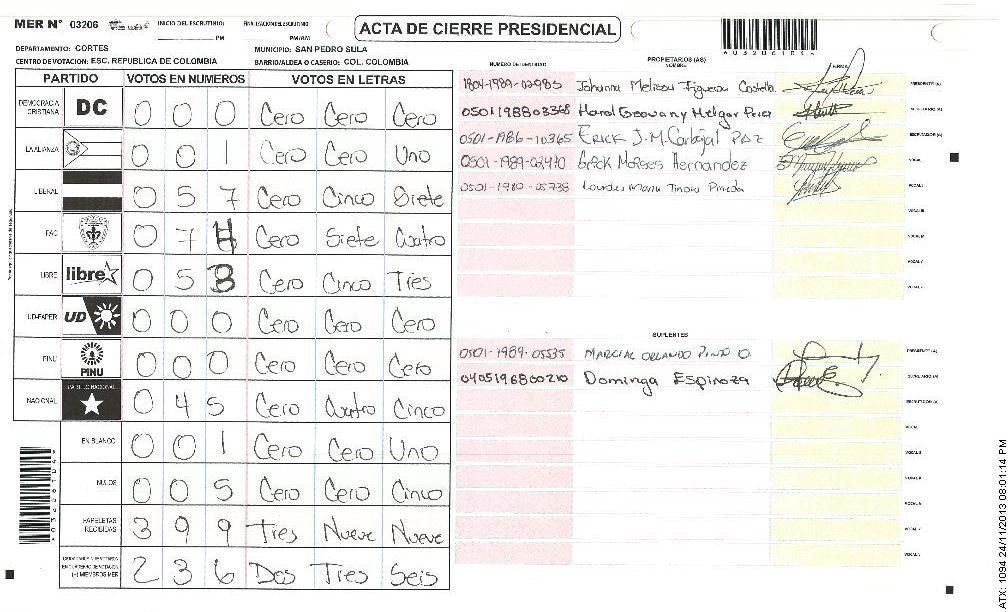 MER N° 03206 INICIO DEL ESCRUTINIO: PM FINALIZACION DEL ESCRUTINIO: PM/AM
ACTA DE CIERRE PRESIDENCIAL
DEPARTAMENTO: CORTES MUNICIPIO: SAN PEDRO SULA
CENTRO DE VOTACION: ESC. REPUBLICA DE COLOMBIA BARRIO/ALDEA O CASERIO: COL. COLOMBIA
PARTIDO VOTOS EN NUMEROS VOTOS EN LETRAS
DEMOCRACIA CRISTIANA DC 0 0 0 Cero Cero Cero
LA ALIANZA 0 0 1 Cero Cero Uno
LIBERAL 0 5 7 Cero Cinco Siete
PAC 0 7 4 Cero Siete Cuatro
LIBRE libre 0 5 3 Cero Cinco Tres
UD-FAPER UD 0 0 0 Cero Cero Cero
PINU PINU 0 0 0 Cero Cero Cero
NACIONAL PARTIDO NACIONAL 0 4 5 Cero Cuatro Cinco
EN BLANCO 0 0 1 Cero Cero Uno
NULOS 0 0 5 Cero Cero Cinco
PAPELETAS RECIBIDAS 3 9 9 Tres Nueve Nueve
2 3 6 Dos Tres Seis
(+) MIEMBROS MER
NUMERO DE IDENTIDAD PROPIETARIOS (AS) NOMBRE FIRMA
1804-1989-02985 Johanna Melissa Figueroa Castella PRESIDENTE (A)
0501198803368 Harol Geovany Melgar SECRETARIO (A)
0501-1986-10365 Erick J.M. Carbajal Paz ESCRUTADOR (A)
0501-1989-02970 Erick Moises Hernandez VOCAL I
0501-1980-05738 Lourdes Maria Tinoco Pineda VOCAL II
VOCAL III
VOCAL IV
VOCAL V
SUPLENTES
0501-1989-05535 MARCIAL ORLANDO PINTO O. PRESIDENTE (A)
0405196800210 Dominga Espinoza SECRETARIO (A)
ESCRUTADOR (A)
VOCAL I
VOCAL II
VOCAL III
ATX: 1094 24/11/2013 08:01:14 PM